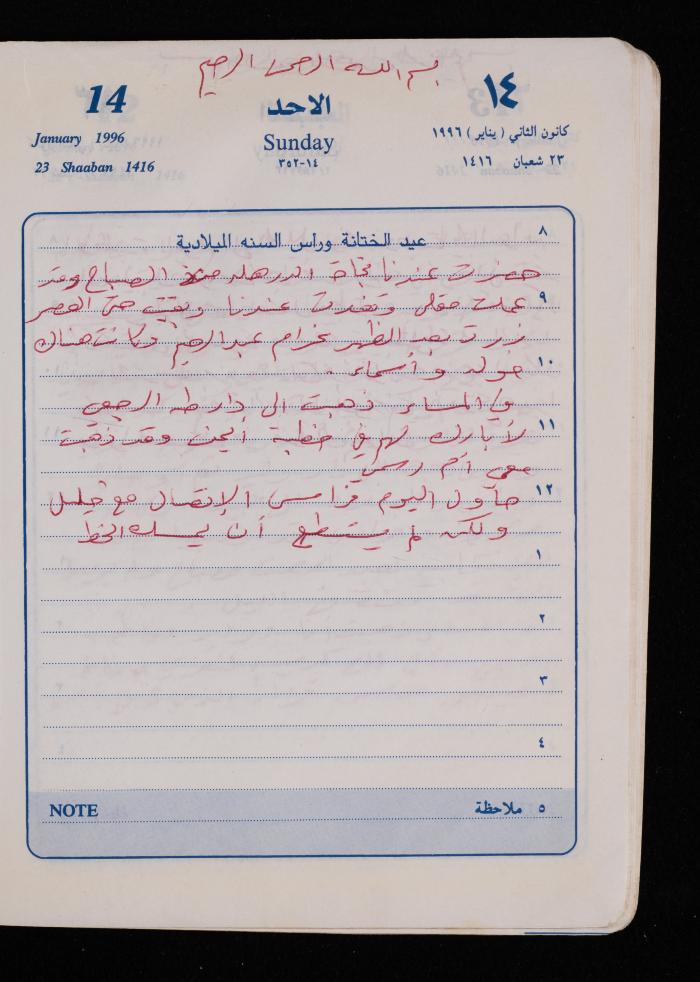 بسم الله الرحمن الرحيم
14
الاحد
١٤
January 1996
Sunday
كانون الثاني ( يناير ) ١٩٩٦
23 Shaaban 1416
١٤-٣٥٢
٢٣ شعبان ١٤١٦
٨
عيد الختانة وراس السنه الميلادية
حضرت عندنا نجاح الصباح وقد
٩
عملت مقلي وتغدت عندنا وبقيت حتى العصر
زرت بعد الظهر غرام عبد الرحيم وكانت هناك
١٠
خوله وأسماء .
في المساء ذهبت الى دار طه الرجعي
١١
لأبارك لهم في خطبة أيمن وقد ذهبت
معي أم رسمي
١٢
حاول اليوم فراس الإتصال مع خليل
ولكن لم يستطع أن يمسك الخط
١
٢
٣
٤
NOTE
٥ ملاحظة